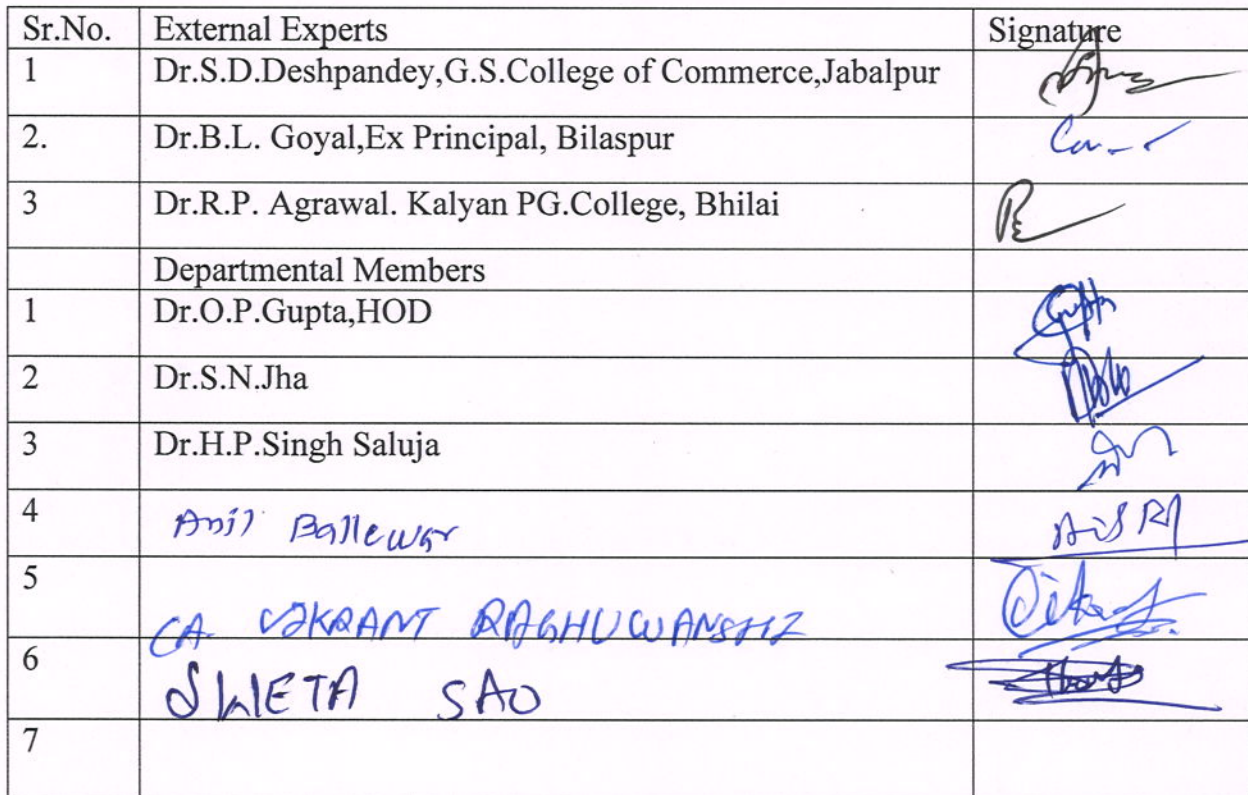 Sr.No. External Experts Signature
1 Dr.S.D.Deshpandey,G.S.College of Commerce,Jabalpur
2. Dr.B.L. Goyal,Ex Principal, Bilaspur
3 Dr.R.P. Agrawal. Kalyan PG.College, Bhilai
Departmental Members
1 Dr.O.P.Gupta,HOD Gupta
2 Dr.S.N.Jha
3 Dr.H.P.Singh Saluja
4 Anil Ballewar
5 CA. VIKRANT RAGHUWANSHI
6 SWETA SAO
7